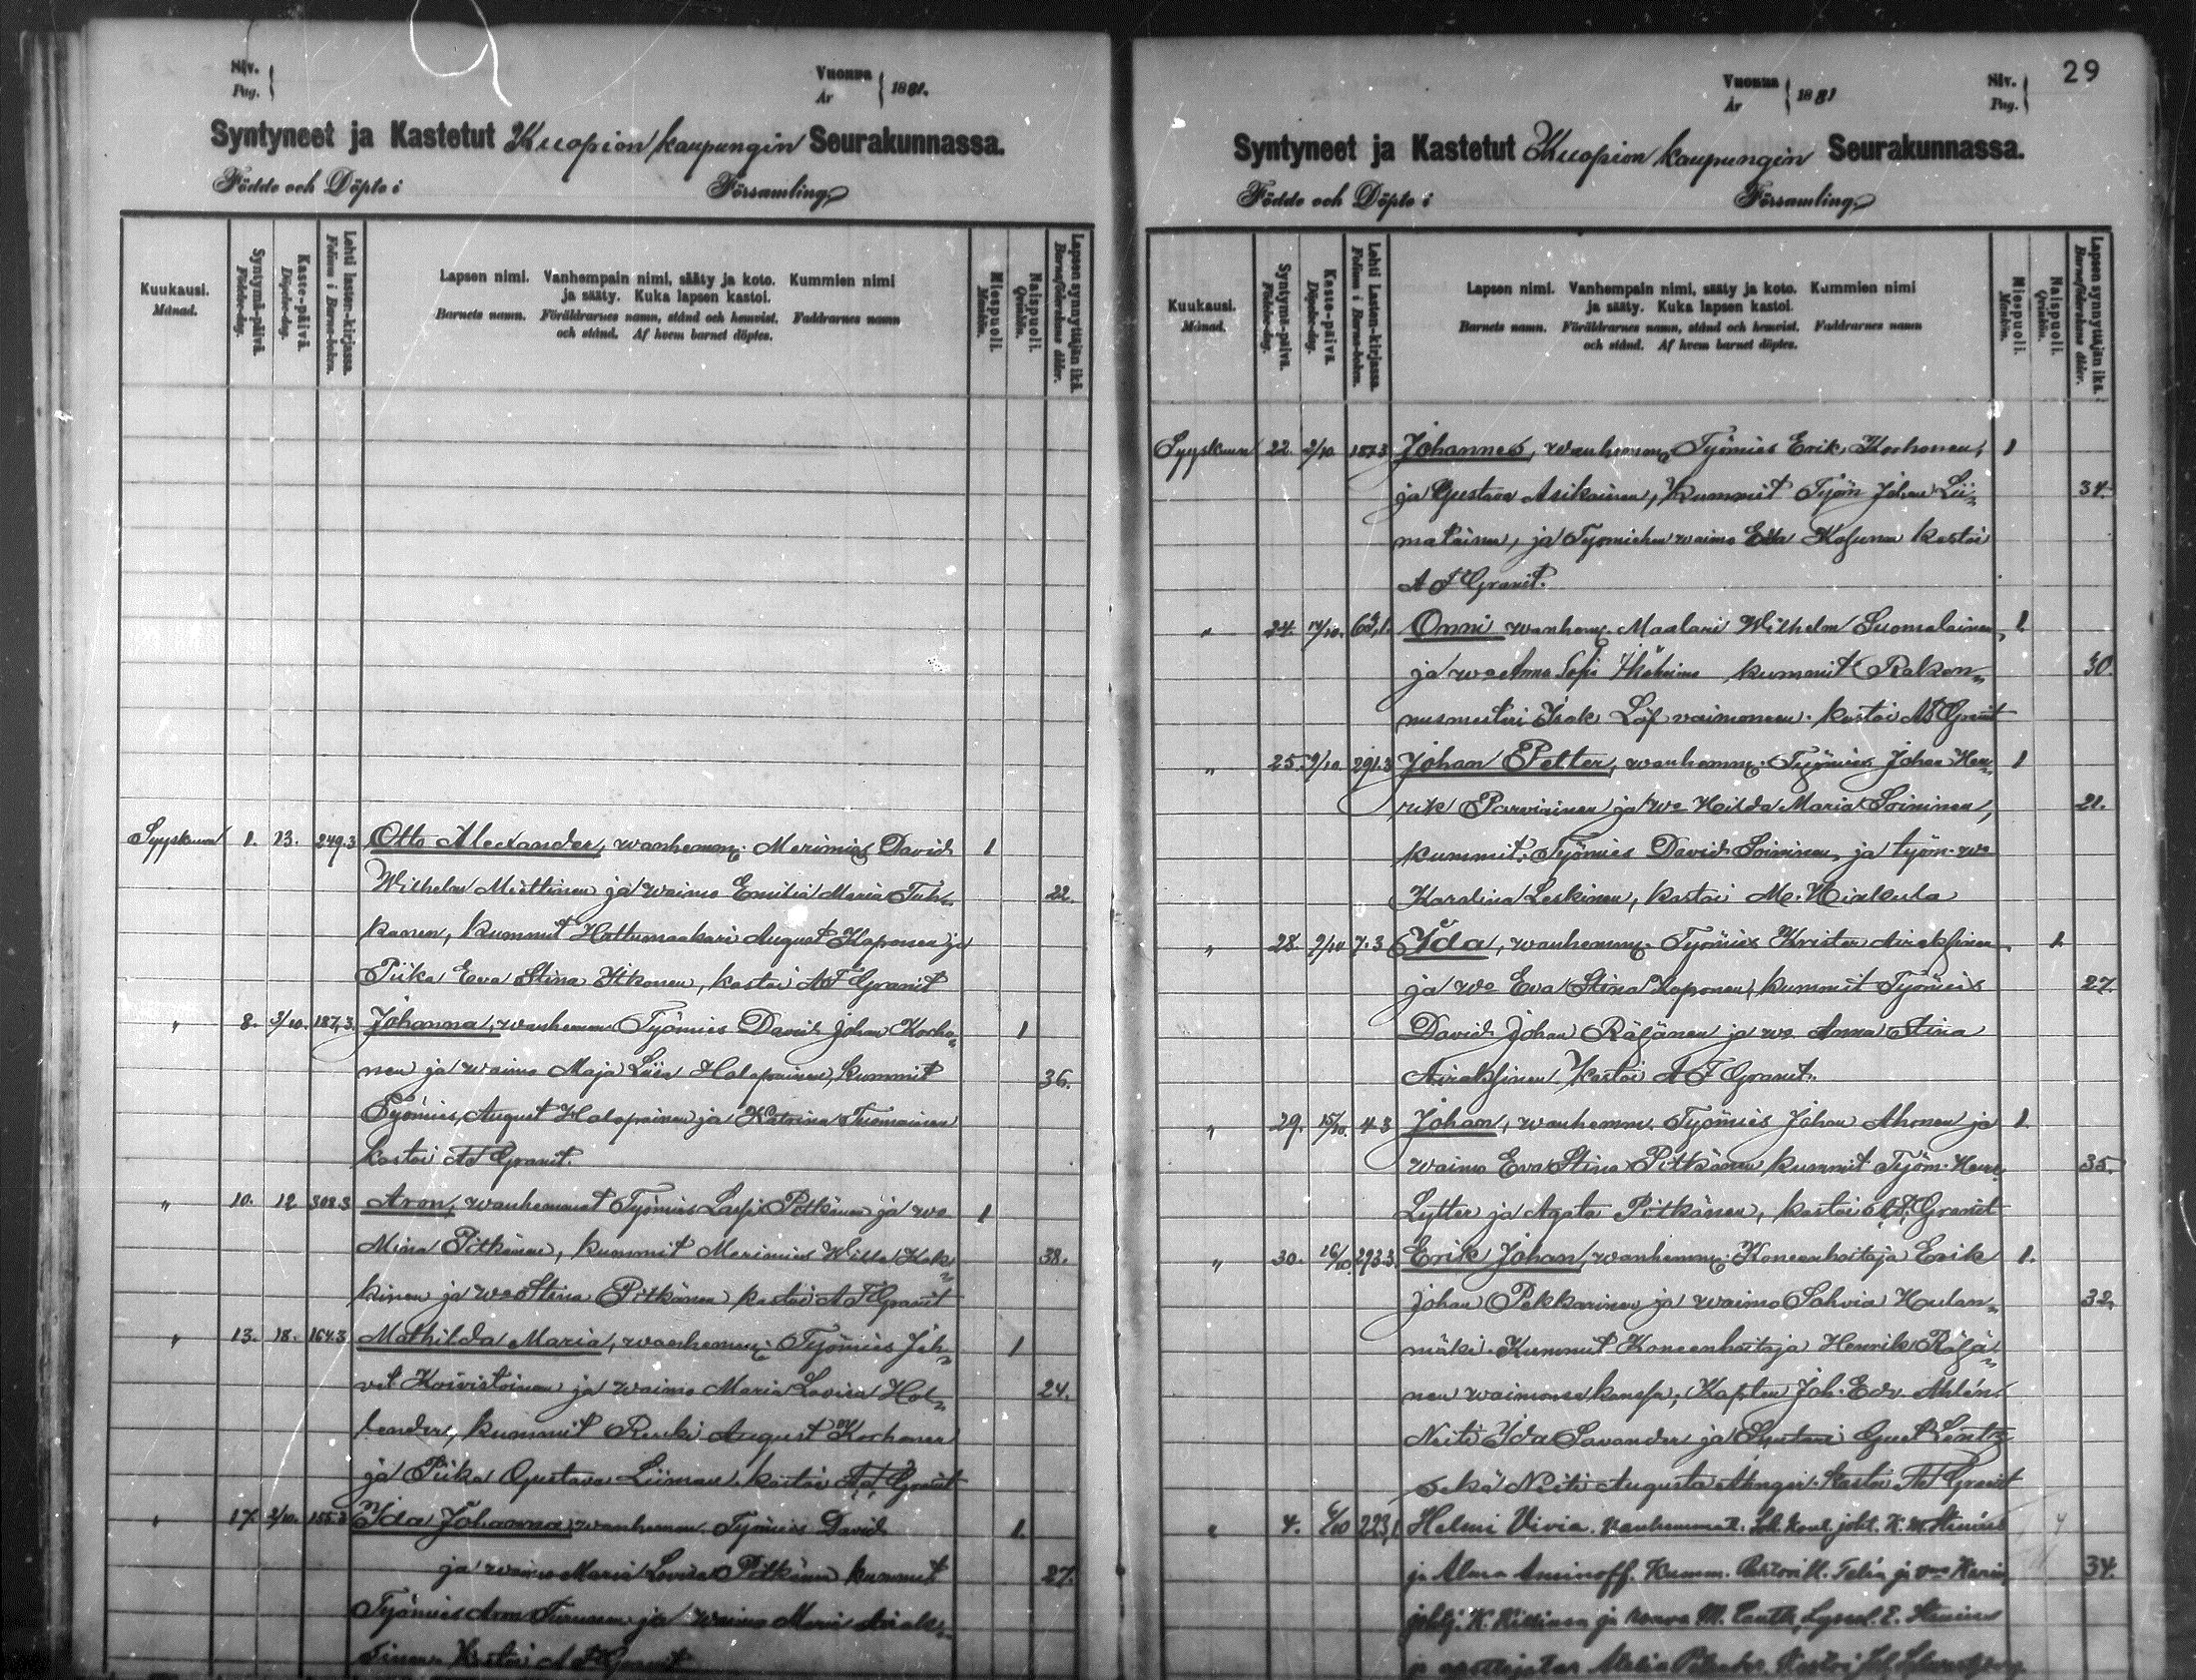 Siv.
Pag.
Vuonna
År
1881.
Syntyneet ja Kastetut Kuopion kaupungin Seurakunnassa.
Födde och Döpte i Församling.
Kuukausi.
Månad.
Syntymä-päivä.
Födelse-dag.
Kaste-päivä.
Döpelse-dag.
Lehti lasten-kirjassa.
Folium i Barna-boken.
Lapsen nimi. Vanhempain nimi, sääty ja koto. Kummien nimi
ja sääty. Kuka lapsen kastoi.
Barnets namn. Föräldrarnes namn, stånd och hemvist. Faddrarnes namn
och stånd. Af hvem barnet döptes.
Miespuoli.
Mankön.
Naispuoli.
Qvinkön.
Lapsen synnyttäjän ikä.
Barnaföderskans ålder.
Syyskuun 1. 13. 249.3 Otto Alexander, wanhemm. Merimies David 1
Wilhelm Miettinen ja waimo Emilia Maria Tuh- 22.
kanen, kummit Hattumaakari August Kaponen ja
Piika Eva Stina Itkonen, kastoi A F Granit
" 8. 3/10. 187,3. Johanna, wanhemm. Työmies David Johan Korho- 1
nen ja waimo Maja Liisa Holopainen, kummit 36.
Työmies August Holopainen ja Katrina Tuomainen
kastoi A F Granit.
" 10. 12 308.3 Aron, wanhemmat Työmies Lassi Pitkänen ja wo 1
Mina Pitkänen, kummit Merimies Wille Kok- 38.
kinen ja wo Stina Pitkänen kastoi A F Granit
" 13. 18. 164.3 Mathilda Maria, wanhemm. Työmies Joh- 1
vet Koivistoinen ja waimo Maria Lovisa Hol- 24.
lender, kummit Renki August Korhonen
ja Piika Gustava Liiman kastoi A F Granit
" 17. 2/10. 155.3 Ida Johanna, wanhemm. Työmies David 1
ja waimo Maria Lovisa Pitkänen kummit 27.
Työmies Aron Turunen ja waimo Maria Airak-
sinen Kastoi A F Granit
29
Vuonna
År
1881
Siv.
Pag.
Syntyneet ja Kastetut Kuopion kaupungin Seurakunnassa.
Födde och Döpte i Församling.
Kuukausi.
Månad.
Syntymä-päivä.
Födelse-dag.
Kaste-päivä.
Döpelse-dag.
Lehti Lasten-kirjassa.
Folium i Barna-boken.
Lapsen nimi. Vanhempain nimi, sääty ja koto. Kummien nimi
ja sääty. Kuka lapsen kastoi.
Barnets namn. Föräldrarnes namn, stånd och hemvist. Faddrarnes namn
och stånd. Af hvem barnet döptes.
Miespuoli.
Mankön.
Naispuoli.
Qvinkön.
Lapsen synnyttäjän ikä.
Barnaföderskans ålder.
Syyskuun 22. 2/10 187.3 Johannes, wanhemm. Työmies Erik Korhonen, 1
ja Gustava Asikainen, Kummit Työm Johan Lii- 34.
matainen, ja Työmiehen waimo Eva kastoi
A F Granit.
" 24. Onni wanhem. Maalari Wilhelm Suomalainen, 1.
ja wo Anna Sofia kummit Raken- 30.
nusmestari Isak Löf vaimoneen. kastoi A F Granit
" 25. 9/10 291.3 Johan Petter, wanhemm. Työmies Johan Hen- 1
rik Parviainen ja wo Hilda Maria Soininen, 21.
kummit, Työmies David Soininen, ja työm. wo
Karolina Leskinen, kastoi
" 28. 9/10 7.3 Ida, wanhemm. Työmies Krister Airaksinen 1.
ja wo Eva Stina Kaponen, kummit Työmies 27.
David Johan Räisänen ja wo Anna Stina
Airaksinen Kastoi A F Granit.
" 29. 15/10. 4 3 Johan, wanhemm. Työmies Johan Ahonen ja 1.
waimo Eva Stina Pitkänen, kummit Työm. Henr. 35.
Lytter ja Agata Pitkänen, kastoi A F. Granit
" 30. 16/10. 293 3. Erik Johan, wanhemm. Koneenhoitaja Erik 1.
Johan Pekkarinen ja waimo Sahvia Haulan- 32.
mäki. Kummit Koneenhoitaja Henrik Räisä-
nen waimonsa kanssa, Kapten Joh. Edv. Ahlén.
Neiti Ida Savander ja Gust Lentz
sekä Neiti Augusta Ahnger. Kastoi A F Granit
" 4. 6/10 223,1 Helmi Vivia. Vanhemmat. joht. K. M. Stenius
ja Alma Aminoff. Kumm. Telén ja 34.
johtj. K. Killinen ja rouva M. Canth, Lyseol. E. Stenius